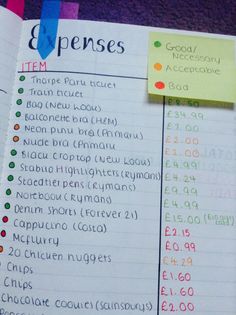 Expenses
Good/
Necessary
Acceptable
Bad
ITEM
Thorpe Park ticket
Train ticket
£8.50
Bag (New Look)
£34.99
Balconette bra (H&M)
£7.00
Neon pink bra (Primark)
£2.00
Nude bra (Primark)
£2.00
Black crop top (New Look)
£4.99
Stabilo Highlighters (Rymans)
£4.24
Staedtler pens (Rymans)
£9.99
Notebook (Rymans)
£4.99
Denim shorts (Forever 21)
£15.00
Cappuccino (Costa)
£2.15
McFlurry
£0.99
20 Chicken nuggets
£4.29
Chips
£1.60
Chips
£1.60
Chocolate cookies (Sainsburys)
£2.00